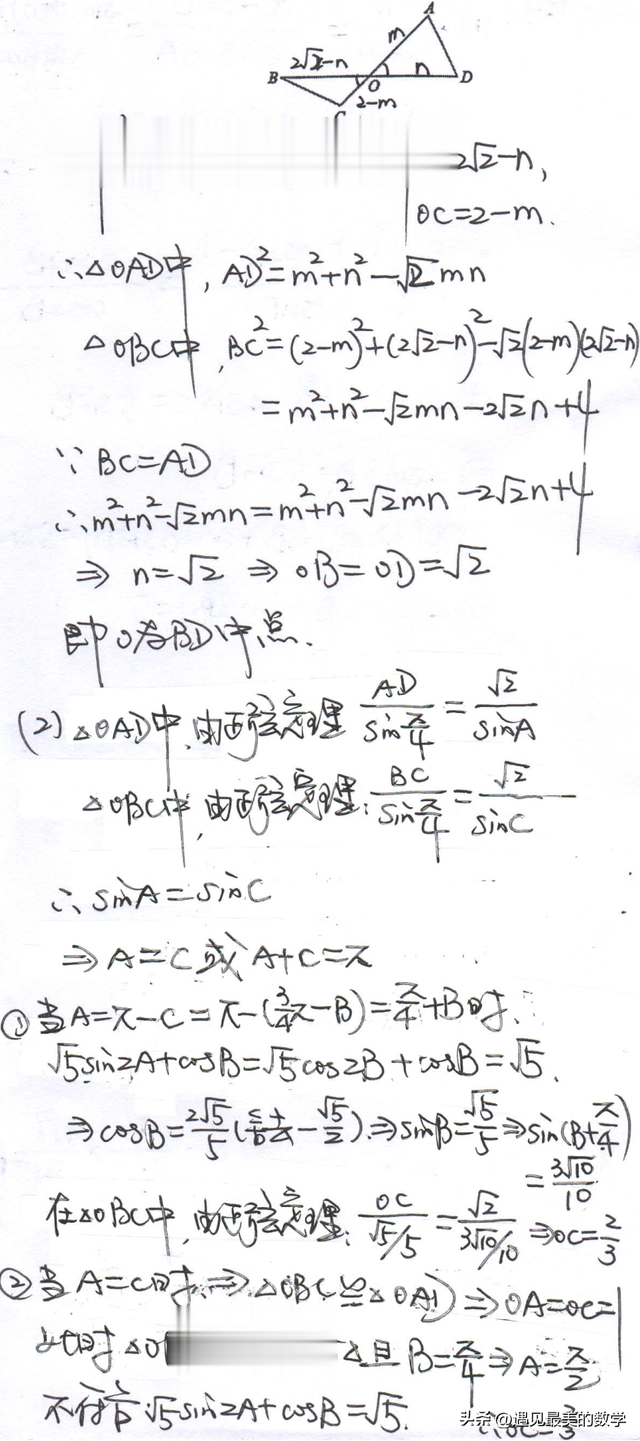 A
m
2√2-n
n
B
O
D
C
2-m
2√2-n,
OC=2-m.
∴△OAD中, AD²=m²+n²-√2mn
△OBC中, BC²=(2-m)²+(2√2-n)²-√2(2-m)(2√2-n)
=m²+n²-√2mn-2√2n+4
∵BC=AD
∴m²+n²-√2mn=m²+n²-√2mn-2√2n+4
⇒ n=√2 ⇒ OB=OD=√2
即O为BD中点.
(2) △OAD中,由正弦定理 AD/sin π/4 = √2/sinA
△OBC中,由正弦定理: BC/sin π/4 = √2/sinC
∴ sinA=sinC
⇒ A=C 或 A+C=π
① 当A=π-C=π-(3/4π-B)=π/4+B时.
√5sin2A+cosB=√5cos2B+cosB=√5.
⇒cosB=2√5/5(舍去-√5/2).⇒sinB=√5/5⇒sin(B+π/4)
=3√10/10
在△OBC中,由正弦定理: OC/√5/5 = √2/3√10/10 ⇒OC=2/3
② 当A=C时,⇒△OBC≌△OAD⇒OA=OC=1
此时△O
△且B=π/4⇒A=π/2
不符合√5sin2A+cosB=√5.
∴OC=2/3
头条 @遇见最美的数学